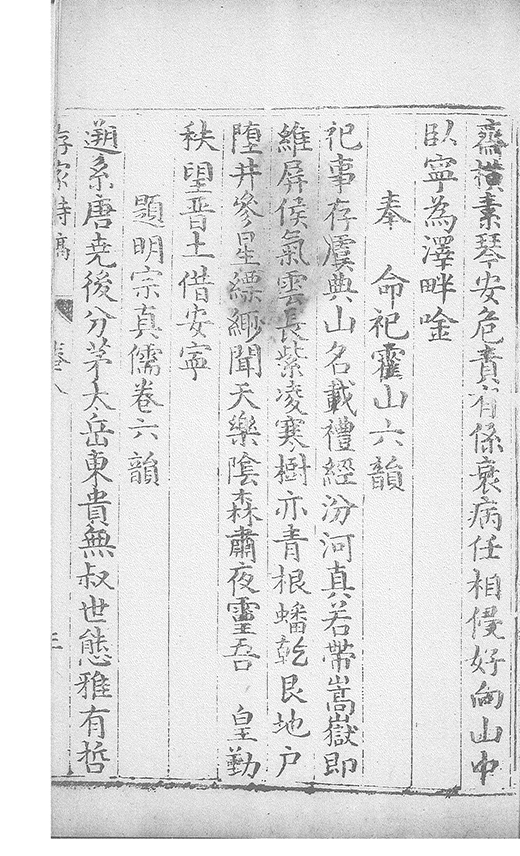 齋橫素琴安危責有係衰病任相侵好向山中
臥寧為澤畔唫
奉　命祀霍山六韻
祀事存虞典山名載禮經汾河真若帶嵩嶽即
維屏侯氣雲長紫凌寒樹亦青根蟠乾艮地戶
墮井參星縹緲聞天樂陰森肅夜靈吾　皇勤
秩望晋土借安寧
題明宗真儒卷六韻
遡系唐堯後分茅太岳東貴無叔世態雅有哲
存家詩稿　卷八　三